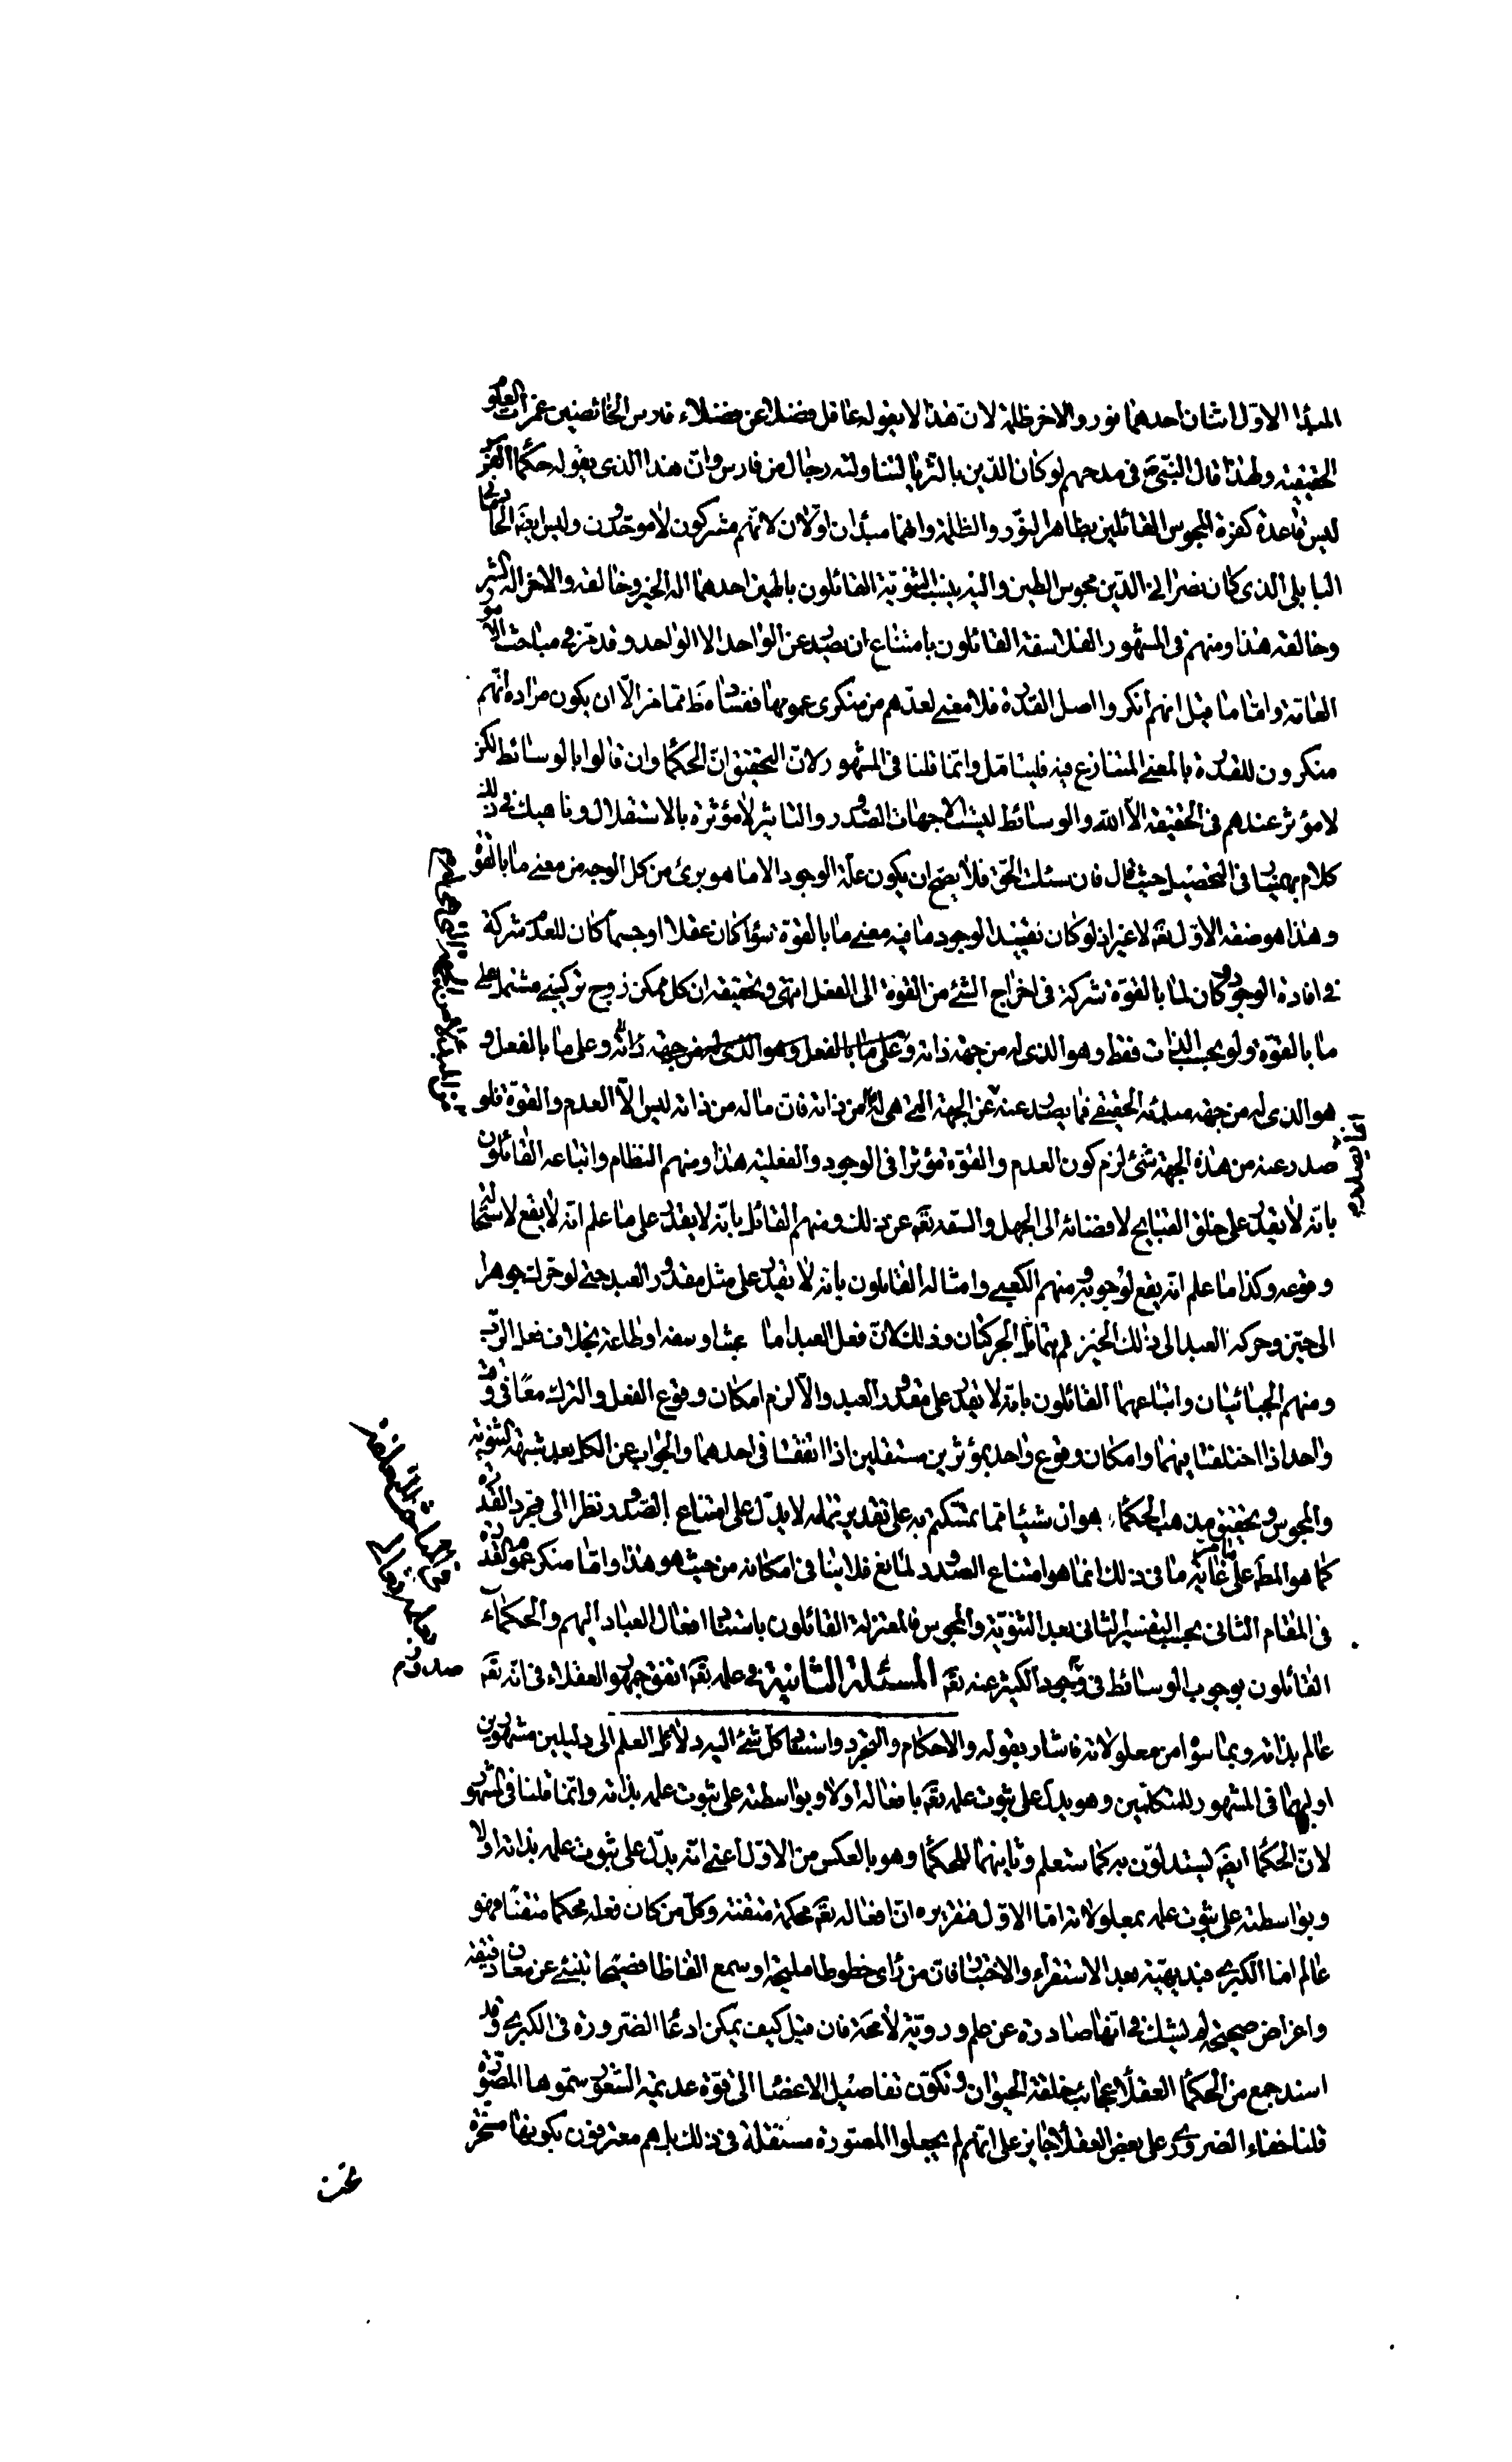 المبدأ الاوّل اثنان احدهما نور والاخر ظلمة لانّ هذا لا يقوله عاقل فضلا عن فضلاء فارس الخائضين غمرات العلوم
الحقيقية ولهذا قال النبىّ ص فى مدحهم لو كان الدّين بالثريا لتناولته رجال من فارس وانّ هذا الذى يقوله حكماء الفرس
ليس قاعدة كفرة المجوس القائلين بظاهر النّور والظلمة وانهما مبدءان اوّلان لانّهم مشركون لا موحّدون وليس ايضَ الحاد مانى
البابلى الذى كان نصرانى الدّين مجوسى الطين واليه ينسب الثنويّة القائلون بالهين احدهما اله الخير وخالقه والاخر اله الشر
وخالقه هذا ومنهم فى المشهور الفلاسفة القائلون بامتناع ان يصدر عن الواحد الا الواحد وقد مرّ فى مباحث الامور
العامّة وامّا ما قيل انهم انكروا اصل القدرة فلا معنى لعدّهم من منكرى عمومها ففساده ظَ ممّا مر الّا ان يكون مراده انّهم
منكرون للقدرة بالمعنى المتنازع فيه فليتامّل وانّما قلنا فى المشهور لانّ التحقيق انّ الحكماء وان قالوا بالوسائط لكن
لا مؤثر عندهم فى الحقيقة الّا الله والوسائط ليست الا جهات الصّدور والتاثير لا مؤثرة بالاستقلال وناهيك فى ذلك
كلام بهمنيار فى التحصيل حيث قال فان سئلت الحقّ فلا يصحّ ان يكون علّة الوجود الا ما هو برئ من كل الوجه من معنى ما بالقوّة
وهذا هو صفة الاوّل تعَ لا غير اذ لو كان يفيد الوجود ما فيه معنى ما بالقوّة سواء كان عقلا او جسما كان للعدم شركة
فى افادة الوجود وكان لما بالقوّة شركة فى اخراج الشئ من القوة الى الفعل انتهى وتحقيقه ان كل ممكن زوج تركيبى مشتمل على
ما بالقوّة ولو بحسب الذات فقط وهو الذى له من جهة ذاته وعلى ما بالفعل وهو الذى له من جهة ذاته وعلى ما بالفعل و
هو الذى له من جهة مبدئه الحقيقى فما يصدر عنه عن الجهة التى هى له من ذاته فانّ ما له من ذاته ليس الّا العدم والقوّة فلو
صدر عنه من هذه الجهة شئ لزم كون العدم والقوّة مؤثرا فى الوجود والفعلية هذا ومنهم النظام واتباعه القائلون
بانّه لا يقدر على خلق القبايح لافضائه الى الجهل والسّفه تعَ عن ذلك ومنهم القائل بانّه لا يقدر على ما علم انّه لا يقع لاستحالة
وقوعه وكذا ما علم انّه يقع لوجوبه ومنهم الكعبى وامثاله القائلون بانه لا يقدر على مثل مقدور العبد حتى لو حرّك جوهرا
الى حيّز وحركه العبد الى ذلك الحيز لم يتماثل الحركتان وذلك لانّ فعل العبد اما عبث او سفه او طاعة بخلاف فعل الربّ
ومنهم الجبائيان واتباعهما القائلون بانّه لا يقدر على مقدور العبد والّا لزم امكان وقوع الفعل والترك معًا فى وقت
واحد اذا اختلفتا بينهما وامكان وقوع واحد بمؤثرين مستقلين اذا اتفقتا فى احدهما والجواب عن الكل بعد شبهة الثنوية
والمجوس وتحقيق مذهب الحكماء هو ان شيئا ممّا يتمسّكتم به على تقدير تمامه لا يدلّ على امتناع الصّدور نظرا الى مجرد القدرة
كما هو المطَ على غاية ما فى ذلك انما هو امتناع الصّدور لمانع فلا ينافى امكانه من حيث هو هذا وامّا منكر عموم القدرة
فى المقام الثانى بحسب التفسير الثانى بعد الثنويّة والمجوس فالمعتزلة القائلون باستناد افعال العباد اليهم والحكماء
القائلون بوجوب الوسائط فى وجود الكثير عنه تعَ المسئلة الثانية فى علمه تعَ اتفق جمهور العقلاء فى انّه تعَ
عالم بذاته وبما سواه من معلولاته فاشار بقوله والاحكام والتجرد واستناد كل شئ اليه دلائل العلم الى دليلين مشهورين
اولهما فى المشهور للمتكلمين وهو يدل على ثبوت علمه تعَ بافعاله اولا وبواسطته على ثبوت علمه بذاته وانّما قلنا فى المشهور
لانّ الحكماء ايضَ يستدلّون به كما ستعلم وثانيهما للحكماء وهو بالعكس من الاوّل اعنى انّه يدلّ على ثبوت علمه بذاته اولا
وبواسطته على ثبوت علمه بمعلولاته امّا الاوّل فتقريره انّ افعاله تعَ محكمة متقنة وكلّ من كان فعله محكما متقنًا فهو
عالم امّا الكبرى فبديهيّة بعد الاستقراء والاختبار فانّ من راى خطوطا مليحة او سمع الفاظا فصيحة تنبئ عن معان دقيقة
واغراض صحيحة لم يشكّ فى انّها صادرة عن علم ورويّة لا محة فان قيل كيف يمكن ادّعاء الضرورة فى الكبرى وقد
اسند جمع من الحكماء العقلاء عجائب خلقة الحيوان وتكوّن تفاصيل الاعضاء الى قوّة عديمة الشعور سمّوها المصوّرة
قلنا خفاء الضرورى على بعض العقلاء جايز على انّهم لم يجعلوا المصوّرة مستقلة فى ذلك بل هم معترفون بكونها مسخّرة
صدر دوم